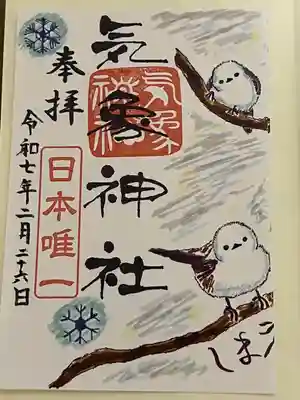 奉拝
気象神社
気象神社
日本唯一
令和七年二月二十六日